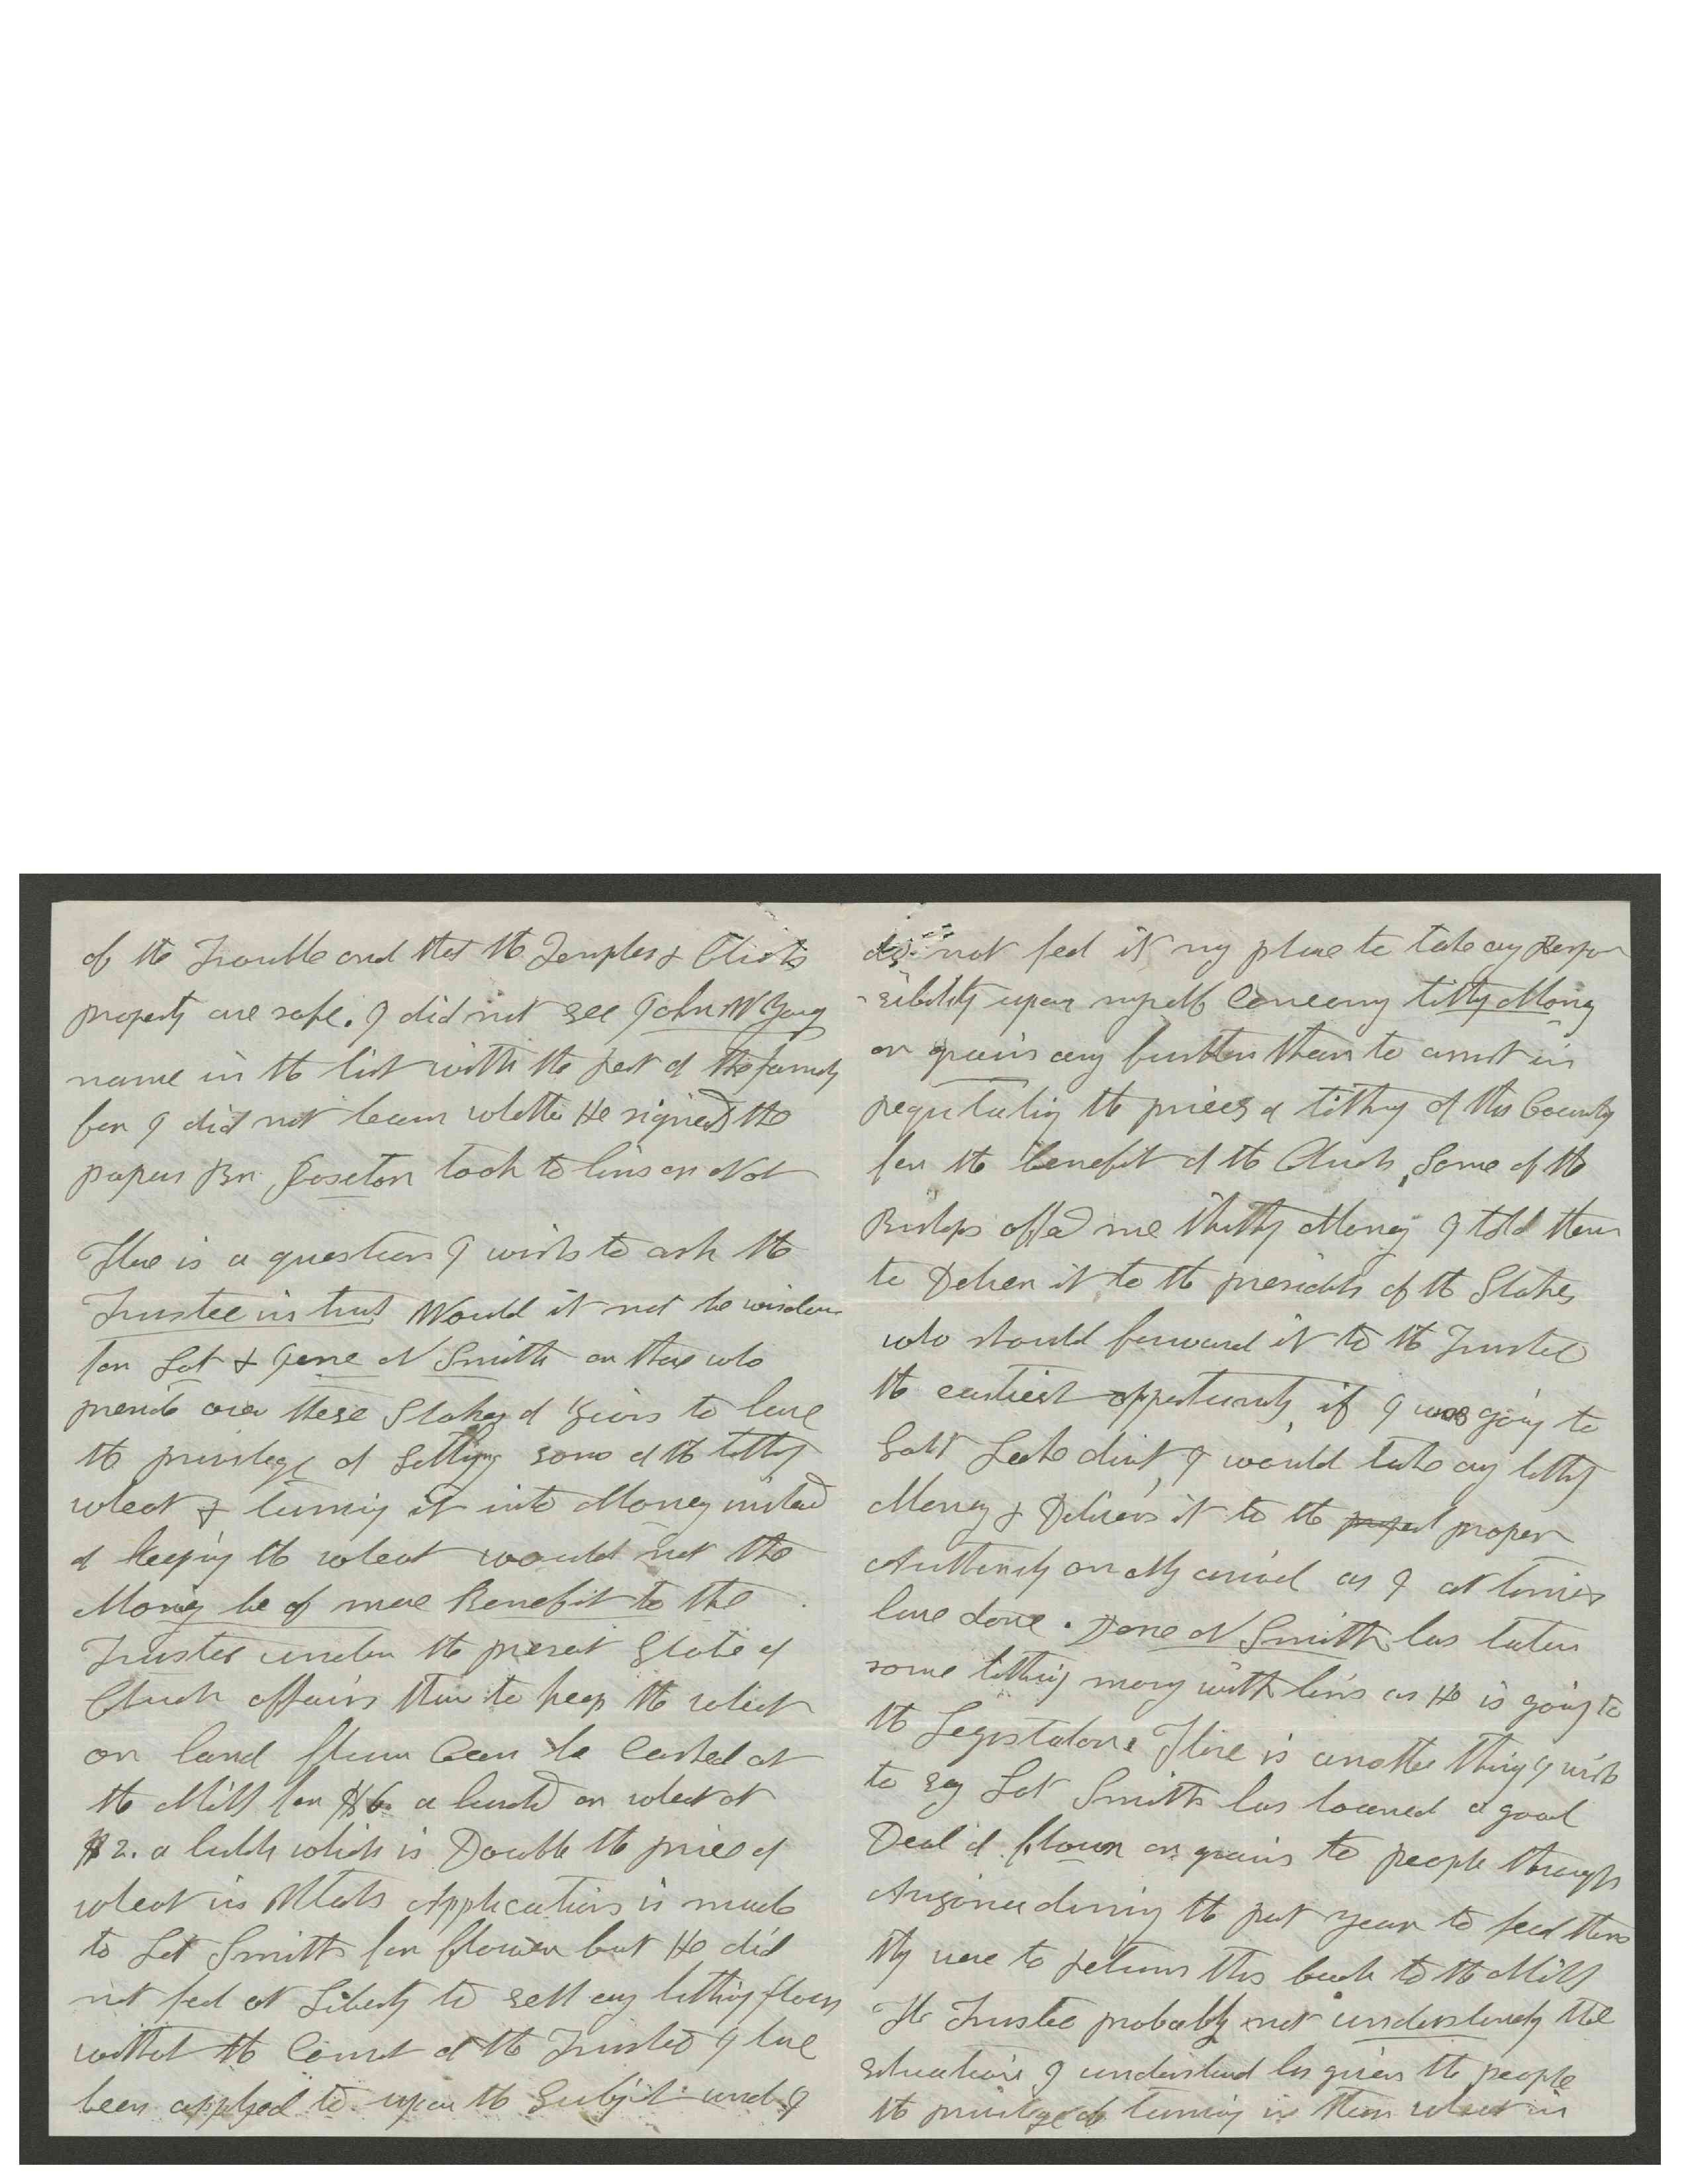 of the Trouble and that the Temples & Church
property are safe. I did not see John W Young
name in the list with the rest of the family
for I did not learn whether He signed the
papers Br Roseton took to him or Not
There is a question I wish to ask the
Trustee in trust Would it not be wisdom
for Lot & Jesse N Smith or those who
preside over these Stakes of Zion to have
the privilege of selling some of the tithing
wheat & turning it into Money instead
of keeping the wheat would not the
Money be of more Benefit to the
Trustee under the present State of
Church affairs than to keep the wheat
on hand flour Can be Cashed at
the Mill for $6. a hundred or wheat at
$2. a bushel which is Double the price of
wheat in Utah Application is made
to Lot Smith for flower but He did
not feel at Liberty to sell any tithing flour
without the Consent of the Trustee I have
been applyed to upon the Subject and I
do not feel it my place to take any Respon
-sibility upon myself Concerning tithing Money
or grain any further than to assist in
regulating the prices of tithing of this County
for the benefit of the Church, Some of the
Bishops offered me thithing Money I told them
to Deliver it to the presidents of the Stakes
who should forward it to the Trustee
the earliest oppertunity, if I was going to
Salt Lake direct, I would take any tithing
Money & Deliver it to the proper
Authority on My arrival as I at times
have done. Jesse N Smith has taken
some tithing mony with him as He is going to
the Legislature There is another thing I wish
to say Lot Smith has loaned a good
Deal of flour or grain to people through
Arizona during the past year to feed them
they were to return this back to the Mill
The Trustee probably not understandg the
situation I understand has given the people
the privilege of turning in their wheat in